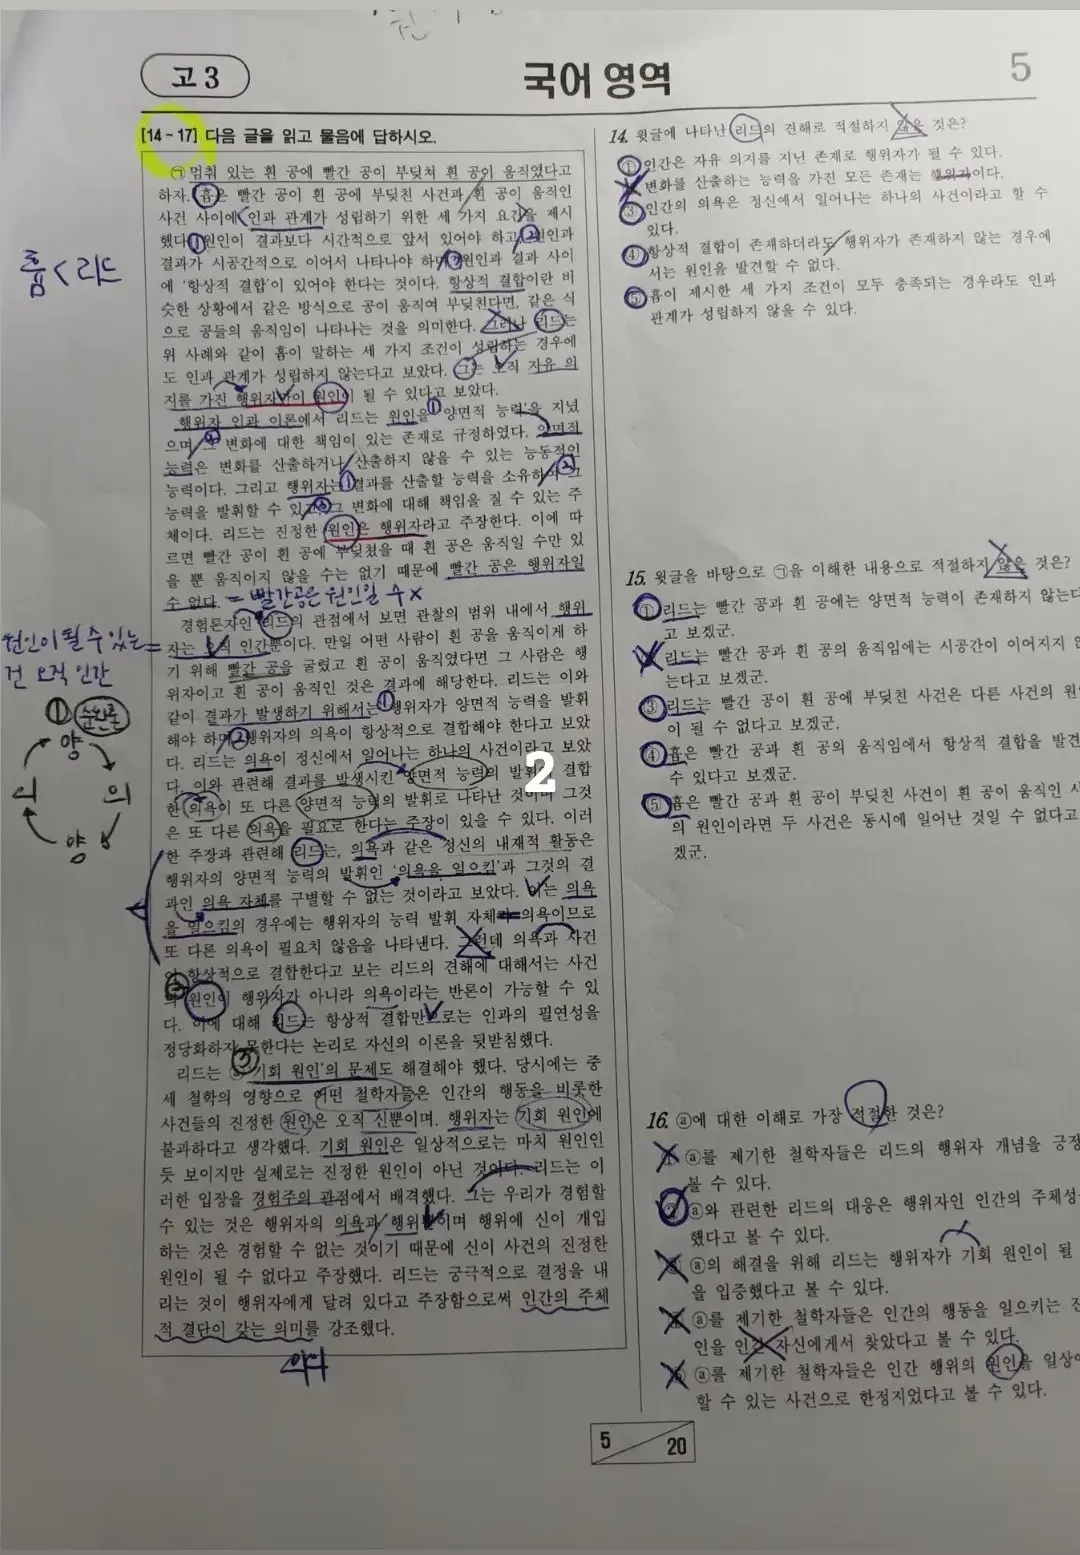 고 3
국어 영역
5
[14~17] 다음 글을 읽고 물음에 답하시오.
㉠멈춰 있는 흰 공에 빨간 공이 부딪쳐 흰 공이 움직였다고
하자. 흄은 빨간 공이 흰 공에 부딪친 사건과 흰 공이 움직인
사건 사이에 인과 관계가 성립하기 위한 세 가지 요건을 제시
했다. 원인이 결과보다 시간적으로 앞서 있어야 하고, 원인과
결과가 시공간적으로 이어서 나타나야 하며, 원인과 결과 사이
에 '항상적 결합'이 있어야 한다는 것이다. 항상적 결합이란 비
슷한 상황에서 같은 방식으로 공이 움직여 부딪친다면, 같은 식
으로 공들의 움직임이 나타나는 것을 의미한다. 그러나 리드는
위 사례와 같이 흄이 말하는 세 가지 조건이 성립하는 경우에
도 인과 관계가 성립하지 않는다고 보았다. 그는 오직 자유 의
지를 가진 행위자만이 원인이 될 수 있다고 보았다.
행위자 인과 이론에서 리드는 원인을 '양면적 능력'을 지녔
으며 그 변화에 대한 책임이 있는 존재로 규정하였다. 양면적
능력은 변화를 산출하거나 산출하지 않을 수 있는 능동적인
능력이다. 그리고 행위자는 결과를 산출할 능력을 소유하여 그
능력을 발휘할 수 있고, 그 변화에 대해 책임을 질 수 있는 주
체이다. 리드는 진정한 원인은 행위자라고 주장한다. 이에 따
르면 빨간 공이 흰 공에 부딪쳤을 때 흰 공은 움직일 수만 있
을 뿐 움직이지 않을 수는 없기 때문에 빨간 공은 행위자일
수 없다. = 빨간공은 원인일 수 X
경험론자인 리드의 관점에서 보면 관찰의 범위 내에서 행위
자는 오직 인간뿐이다. 만일 어떤 사람이 흰 공을 움직이게 하
기 위해 빨간 공을 굴렸고 흰 공이 움직였다면 그 사람은 행
위자이고 흰 공이 움직인 것은 결과에 해당한다. 리드는 이와
같이 결과가 발생하기 위해서는 행위자가 양면적 능력을 발휘
해야 하며, 행위자의 의욕이 항상적으로 결합해야 한다고 보았
다. 리드는 의욕이 정신에서 일어나는 하나의 사건이라고 보았
다. 이와 관련해 결과를 발생시킨 양면적 능력의 발휘에 결합
한 의욕이 또 다른 양면적 능력의 발휘로 나타난 것이며 그것
은 또 다른 의욕을 필요로 한다는 주장이 있을 수 있다. 이러
한 주장과 관련해 리드는, 의욕과 같은 정신의 내재적 활동은
행위자의 양면적 능력의 발휘인 '의욕을 일으킴'과 그것의 결
과인 의욕 자체를 구별할 수 없는 것이라고 보았다. 이는 의욕
을 일으킴의 경우에는 행위자의 능력 발휘 자체가 의욕이므로
또 다른 의욕이 필요치 않음을 나타낸다. 그런데 의욕과 사건
이 항상적으로 결합한다고 보는 리드의 견해에 대해서는 사건
의 원인이 행위자가 아니라 의욕이라는 반론이 가능할 수 있
다. 이에 대해 리드는 항상적 결합만으로는 인과의 필연성을
정당화하지 못한다는 논리로 자신의 이론을 뒷받침했다.
리드는 ⓐ'기회 원인'의 문제도 해결해야 했다. 당시에는 중
세 철학의 영향으로 어떤 철학자들은 인간의 행동을 비롯한
사건들의 진정한 원인은 오직 신뿐이며, 행위자는 기회 원인에
불과하다고 생각했다. 기회 원인은 일상적으로는 마치 원인인
듯 보이지만 실제로는 진정한 원인이 아닌 것이다. 리드는 이
러한 입장을 경험주의 관점에서 배격했다. 그는 우리가 경험할
수 있는 것은 행위자의 의욕과 행위뿐이며 행위에 신이 개입
하는 것은 경험할 수 없는 것이기 때문에 신이 사건의 진정한
원인이 될 수 없다고 주장했다. 리드는 궁극적으로 결정을 내
리는 것이 행위자에게 달려 있다고 주장함으로써 인간의 주체
적 결단이 갖는 의미를 강조했다.
흄 < 리드
원인이 될 수 있는
건 오직 인간
① 순환론
양
의 의
양
2
14. 윗글에 나타난 리드의 견해로 적절하지 않은 것은?
① 인간은 자유 의지를 지닌 존재로 행위자가 될 수 있다.
② 변화를 산출하는 능력을 가진 모든 존재는 행위자이다.
③ 인간의 의욕은 정신에서 일어나는 하나의 사건이라고 할 수
있다.
④ 항상적 결합이 존재하더라도 행위자가 존재하지 않는 경우에
서는 원인을 발견할 수 없다.
⑤ 흄이 제시한 세 가지 조건이 모두 충족되는 경우라도 인과
관계가 성립하지 않을 수 있다.
15. 윗글을 바탕으로 ㉠을 이해한 내용으로 적절하지 않은 것은?
① 리드는 빨간 공과 흰 공에는 양면적 능력이 존재하지 않는다
고 보겠군.
② 리드는 빨간 공과 흰 공의 움직임에는 시공간이 이어지지 않
는다고 보겠군.
③ 리드는 빨간 공이 흰 공에 부딪친 사건은 다른 사건의 원인
이 될 수 없다고 보겠군.
④ 흄은 빨간 공과 흰 공의 움직임에서 항상적 결합을 발견
수 있다고 보겠군.
⑤ 흄은 빨간 공과 흰 공이 부딪친 사건이 흰 공이 움직인 사
의 원인이라면 두 사건은 동시에 일어난 것일 수 없다고
겠군.
16. ⓐ에 대한 이해로 가장 적절한 것은?
① ⓐ를 제기한 철학자들은 리드의 행위자 개념을 긍정
볼 수 있다.
② ⓐ와 관련한 리드의 대응은 행위자인 인간의 주체성
했다고 볼 수 있다.
③ ⓐ의 해결을 위해 리드는 행위자가 기회 원인이 될
을 입증했다고 볼 수 있다.
④ ⓐ를 제기한 철학자들은 인간의 행동을 일으키는 진
인을 인간 자신에게서 찾았다고 볼 수 있다.
⑤ ⓐ를 제기한 철학자들은 인간 행위의 원인을 일상에
할 수 있는 사건으로 한정지었다고 볼 수 있다.
5 20